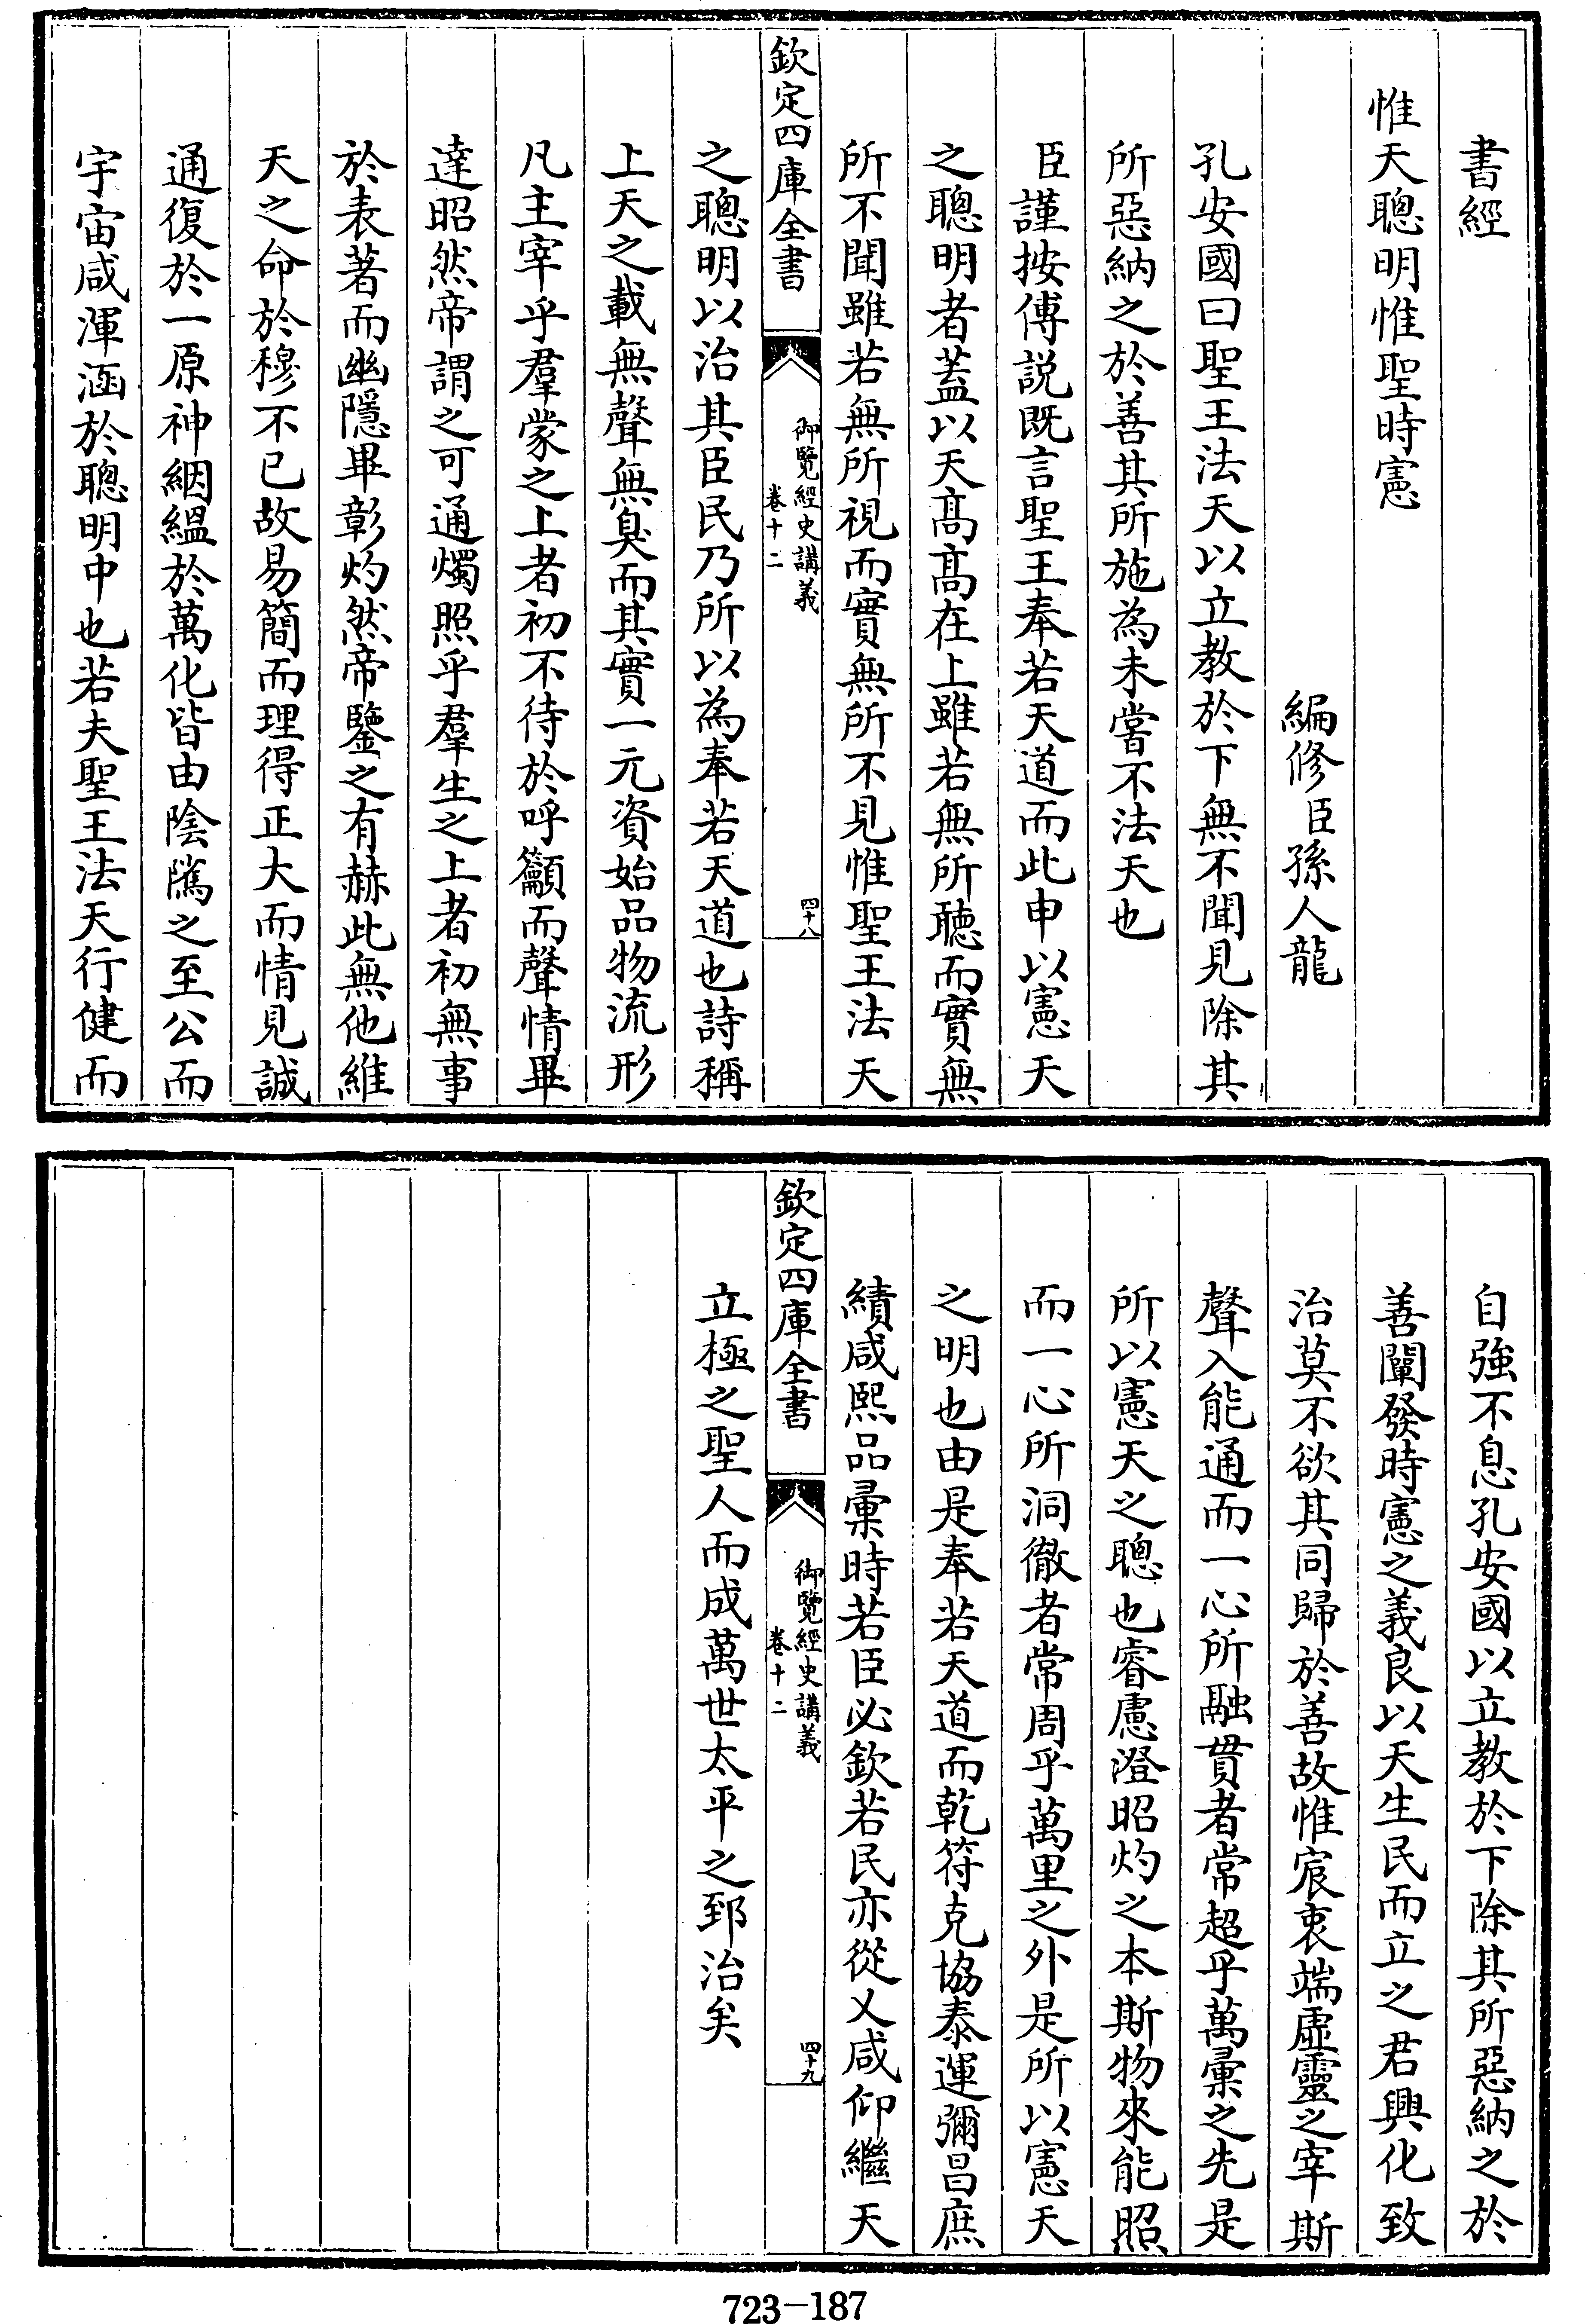 書經
惟天聰明惟聖時憲
編修臣孫人龍
孔安國曰聖王法天以立教於下無不聞見除其
所惡納之於善其所施為未嘗不法天也
臣謹按傅説既言聖王奉若天道而此申以憲天
之聰明者蓋以天高高在上雖若無所聽而實無
所不聞雖若無所視而實無所不見惟聖王法天
欽定四庫全書
御覽經史講義
卷十二
四十八
之聰明以治其臣民乃所以為奉若天道也詩稱
上天之載無聲無臭而其實一元資始品物流形
凡主宰乎羣蒙之上者初不待於呼籲而聲情畢
達昭然帝謂之可通燭照乎羣生之上者初無事
於表著而幽隱畢彰灼然帝鑒之有赫此無他維
天之命於穆不已故易簡而理得正大而情見誠
通復於一原神絪縕於萬化皆由陰隲之至公而
宇宙咸渾涵於聰明中也若夫聖王法天行健而
自強不息孔安國以立教於下除其所惡納之於
善闡發時憲之義良以天生民而立之君興化致
治莫不欲其同歸於善故惟宸衷端虛靈之宰斯
聲入能通而一心所融貫者常超乎萬彙之先是
所以憲天之聰也睿慮澄昭灼之本斯物來能照
而一心所洞徹者常周乎萬里之外是所以憲天
之明也由是奉若天道而乾符克協泰運彌昌庶
績咸熙品彙時若臣必欽若民亦從乂咸仰繼天
欽定四庫全書
御覽經史講義
卷十二
四十九
立極之聖人而成萬世太平之郅治矣
723-187